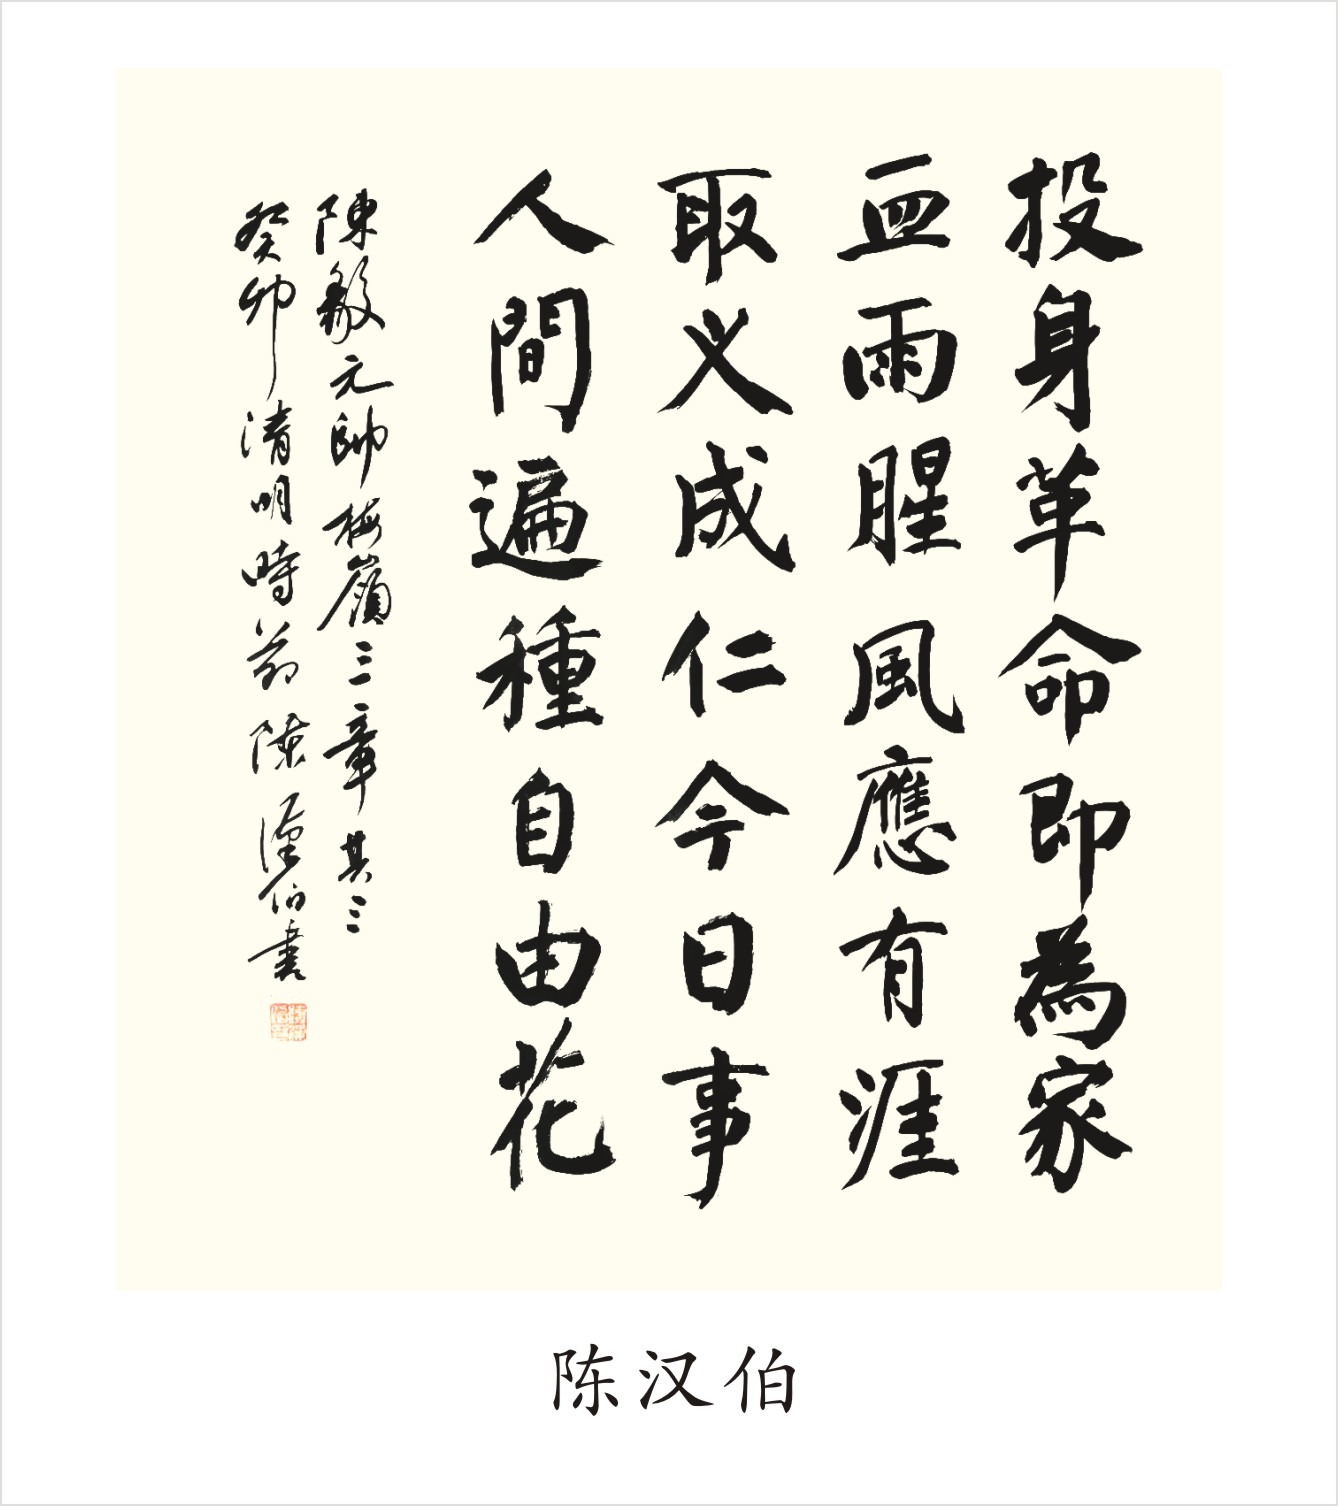 投身革命即為家
血雨腥風應有涯
取义成仁今日事
人間遍種自由花
陳毅元帥梅嶺三章其三
癸卯清明時節陳漢伯書
陈汉伯